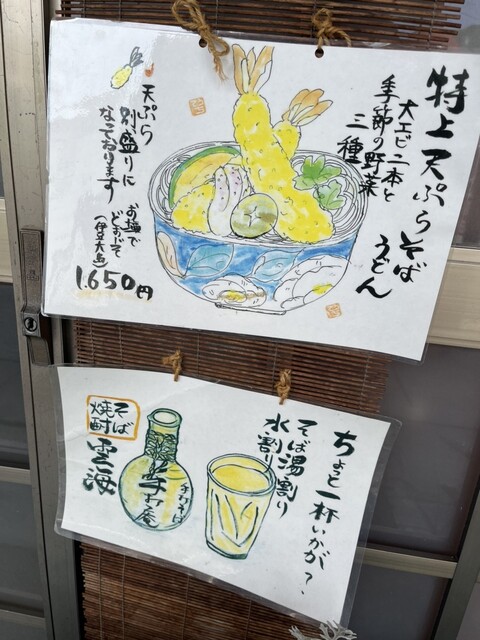 特上天ぷらそば
うどん
大エビ二本と
季節の野菜
三種
天ぷら
別盛りに
なっております
お塩で
どおぞ
(伊豆大島)
1.650円
ちょっと一杯いかが?
そば湯割り
水割り
そば
焼酎
雲海
手打そば